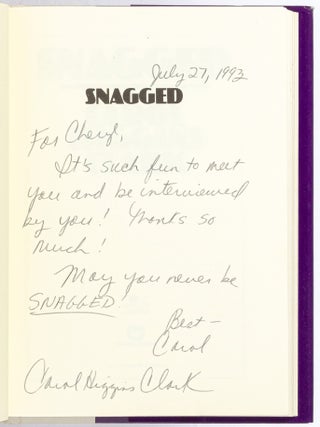 July 27, 1993
SNAGGED
For Cheryl,
It's such fun to meet
you and be interviewed
by you! Thanks so
much!
May you never be
SNAGGED
Best -
Carol
Carol Higgins Clark